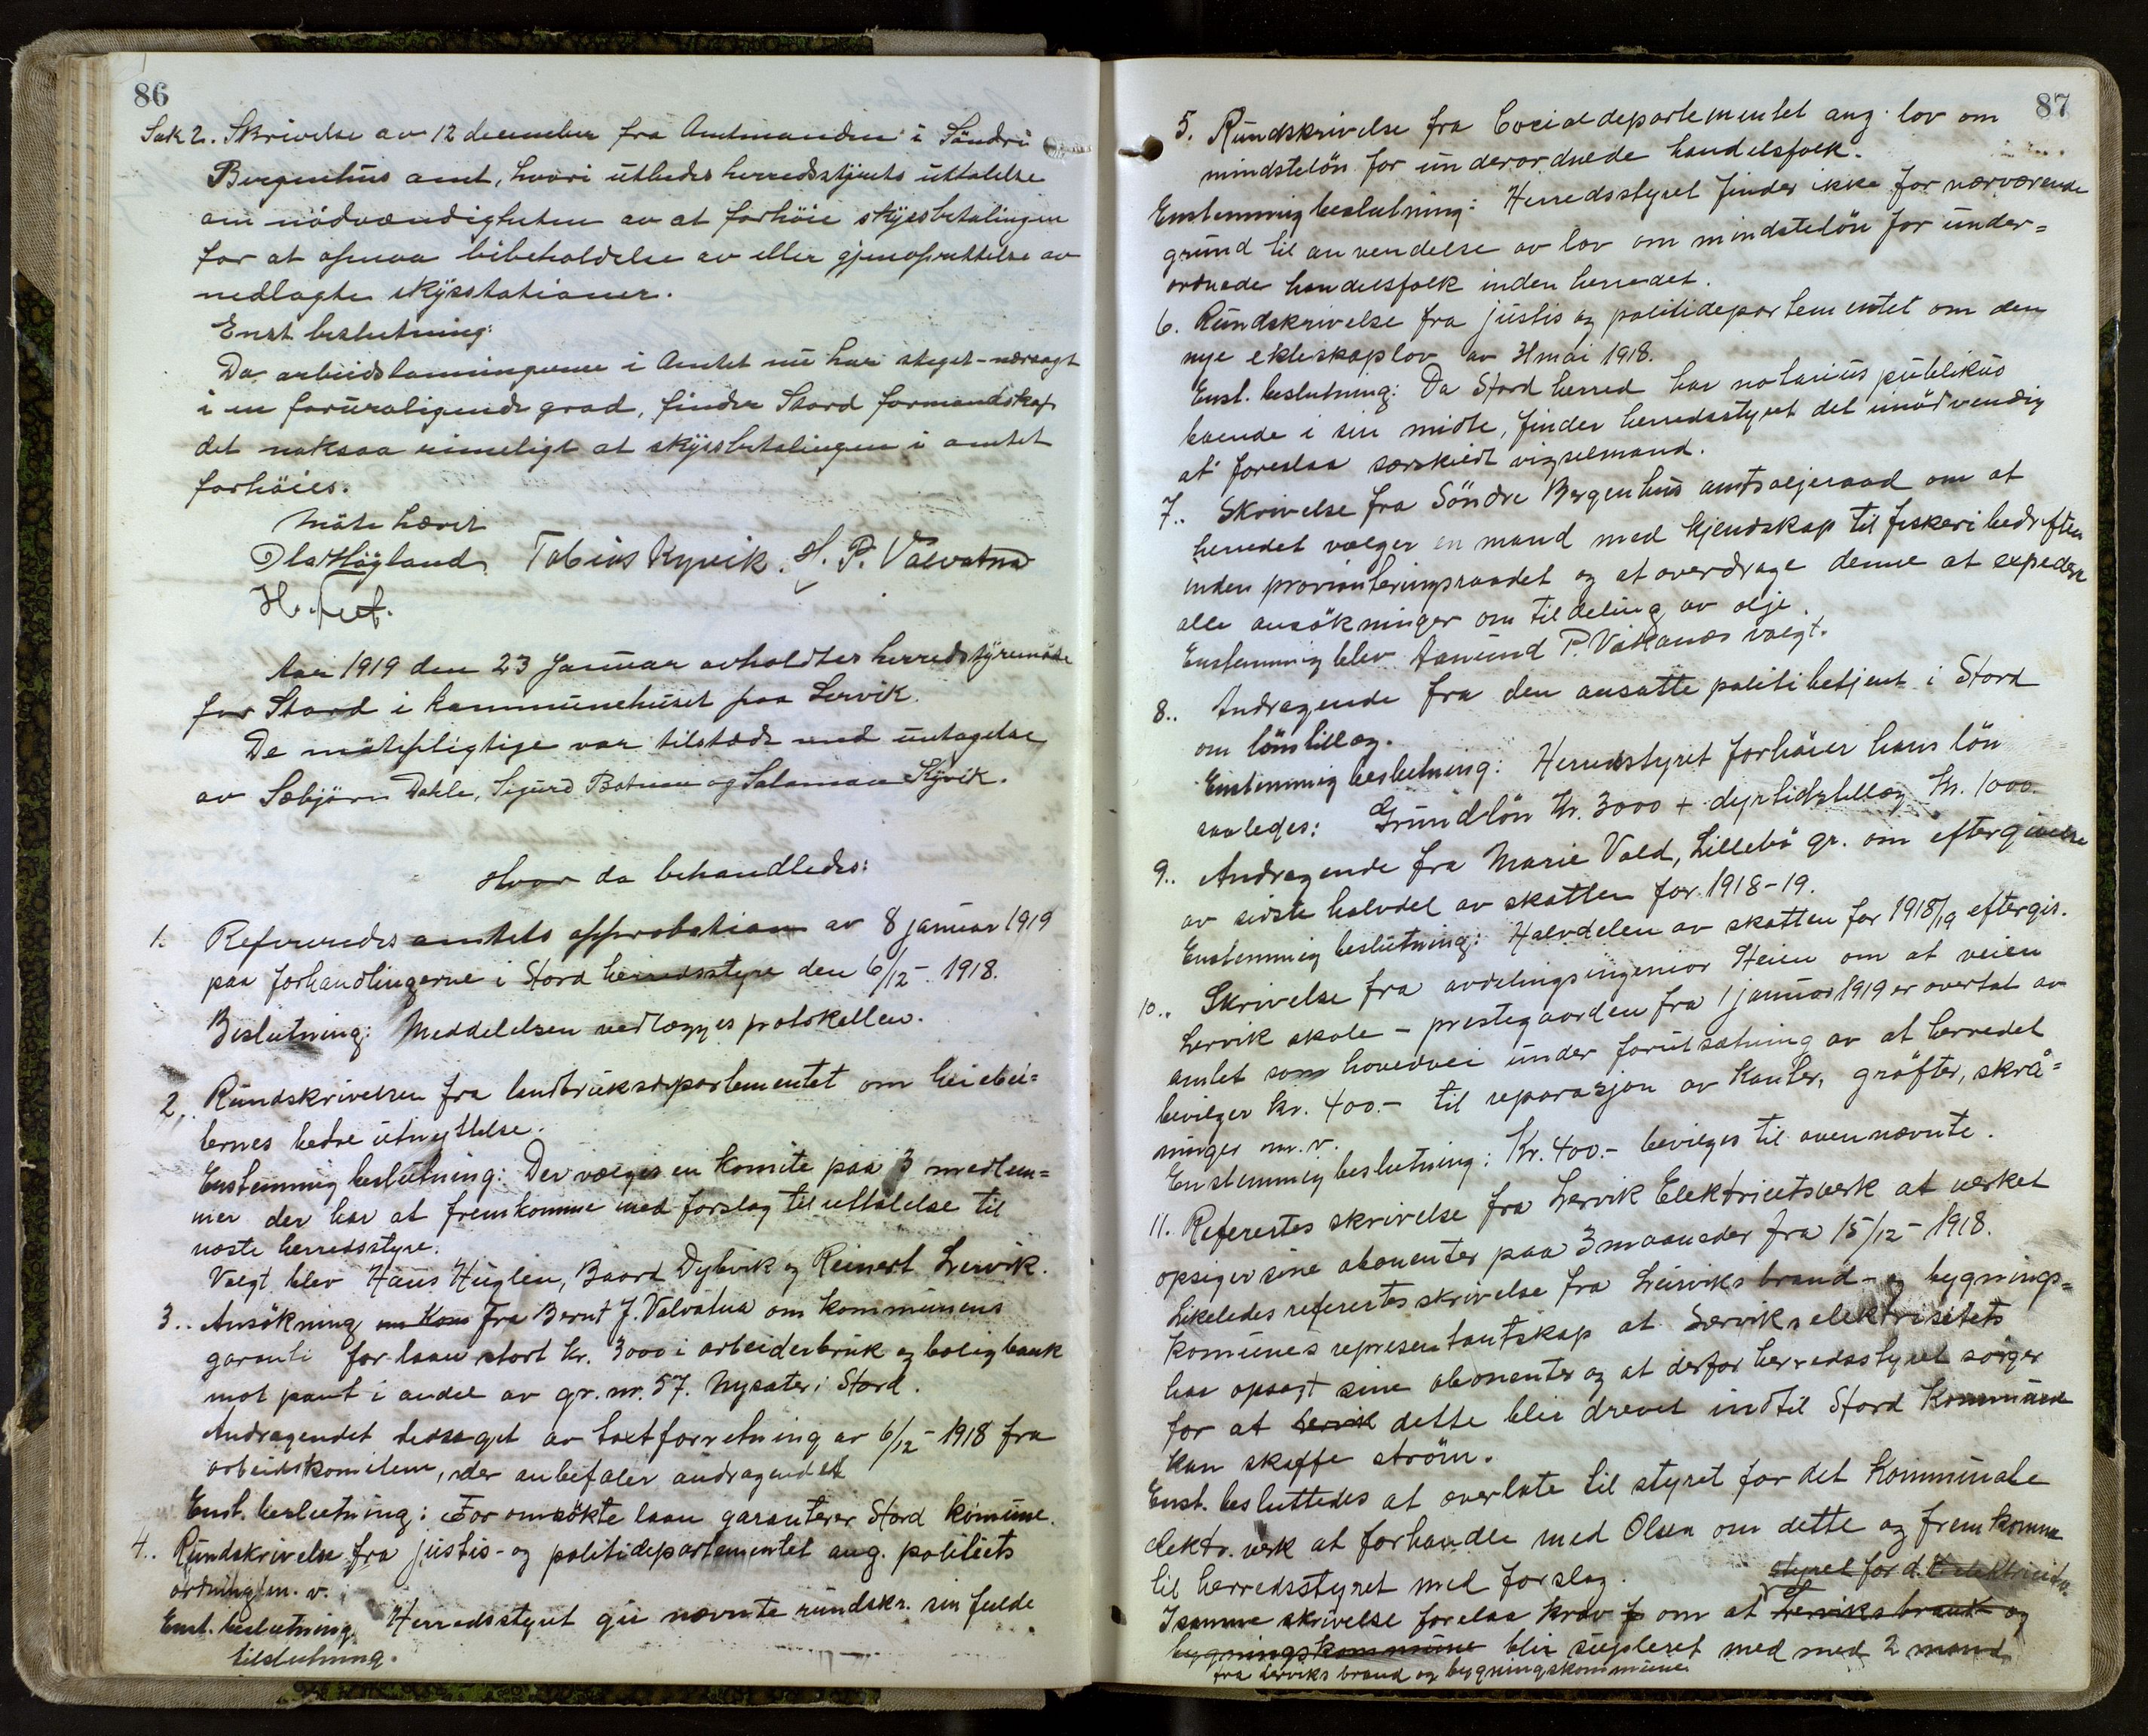 86
Sak 2. Skrivelse av 12 december fra Amtmanden i Söndre
Bergenhus amt, hvori utbedes herredsstyrets uttalelse
om nödvændigheten av at forhöie skysbetalingen
for at opnaa bibeholdelse av eller gjenoprettelse av
nedlagte skysstationer.
Enst beslutning:
Da arbeidslönningerne i Amtet nu har steget - næsagt
i en foruroligende grad, finder Stord formandskap
det noksaa rimeligt at skyssbetalingen i amtet
forhöies.
Möte hævet
Ola Högland Tobias Kyvik. H. P. Valvatna
H.
Aar 1919 den 23 Januar avholdtes herredsstyremöde
for Stord i kommunehuset paa Lervik.
De mötepligtige var tilstede med undtagelse
av Sæbjörn Dahle, Sigurd Botnen og Salamon Kyvik.
Hvor da behandledes:
1. Refereredes amtets approbation av 8 januar 1919
paa forhandlingerne i Stord herredsstyre den 6/12 - 1918.
Beslutning: Meddelelsen vedlægges protokollen.
2. Rundskrivelse fra landbruksdepartementet om
bernes bedre utnyttelse.
Enstemmig beslutning: Der vælges en komite paa 3 medlem=
mer der har at fremkomme med forslag til uttalelse til
næste herredsstyre.
Valgt blev Hans Huglen, Baard Dybvik og Reinert Lervik.
3.. Ansökning om Kom fra Bernt J. Valvatna om kommunens
garanti for laan stort kr. 3000 i arbeiderbruk og boligbank
mot pant i andel av gr. nr. 57. Nysæter i Stord.
Andragendet ledsaget av taxtforretning av 6/12 - 1918 fra
arbeidskomiteen, der anbefaler andragendet
Enst. beslutning: For omsökte laan garanterer Stord komune.
4.. Rundskrivelse fra justis- og politidepartementet ang. politiets
ordning m. v.
Enst. beslutning. Herredsstyret gir nævnte rundskr. sin fulde
tilslutning.
87
5. Rundskrivelse fra Socialdepartementet ang. lov om
mindstelön for underordnede handelsfolk.
Enstemmig beslutning: Herredsstyret finder ikke for nærværende
grund til anvendelse av lov om mindstelön for under=
ordnede handelsfolk inden herredet.
6. Rundskrivelse fra justis og politidepartementet om den
nye ekteskapslov av 31 mai 1918.
Enst. beslutning: Da Stord herred har notarius publikus
boende i sin midte, finder herredsstyret det unödvendig
at foreslaa særskildt vigselmand.
7.. Skrivelse fra Söndre Bergenhus amtsoljeraad om at
herredet vælger en mand med kjendskap til fiskeribedriften
inden provianteringsraadet og at overdrage denne at expedere
alle ansökninger om tildeling av olje.
Enstemmig blev Aamund P. Vikanæs valgt.
8.. Andragende fra den ansatte politibetjent i Stord
om lönstillæg.
Enstemmig beslutning: Herredsstyret forhöier hans lön
saaledes: Grundlön kr. 3000 + dyrtidstillæg kr. 1000.
9.. Andragende fra Marie Vold, Lillebö gr. om eftergivelse
av sidste halvdel av skatten for 1918-19.
Enstemmig beslutning: Halvdelen av skatten for 1918/19 eftergis.
10.. Skrivelse fra avdelingsingeniør Heien om at veien
Lervik skole - prestegaarden fra 1 januar 1919 er overtat av
amtet som hovedvei under forutsætning av at herredet
bevilger kr. 400.- til reparasjon av kanter, gröfter, skrå=
ninger m. v.
Enstemmig beslutning: Kr. 400.- bevilges til ovennævnte.
11. Refereertes skrivelse fra Lervik Elektricitetsverk at verket
opsiger sine abonenter paa 3 maaneder fra 15/12 - 1918.
Likeledes referertes skrivelse fra Leirviks brand- og bygnings=
komunes representantskap at Lerviks elektrisitets
har opsagt sine abonenter og at derfor herredsstyret sörger
for at Lervik dette blir drevet indtil Stord Kommune
kan skaffe ström.
Enst. besluttedes at overlate til styret for det kommunale
elektr. verk at forhandle med Olsen om dette og fremkomme
til herredsstyret med forslag.
styret for d. elektricitets
I samme skrivelse forelaa krav om at Lerviks brand og
bygningskommune blir supleret med med 2 mand
fra Lerviks brand og bygningskommune